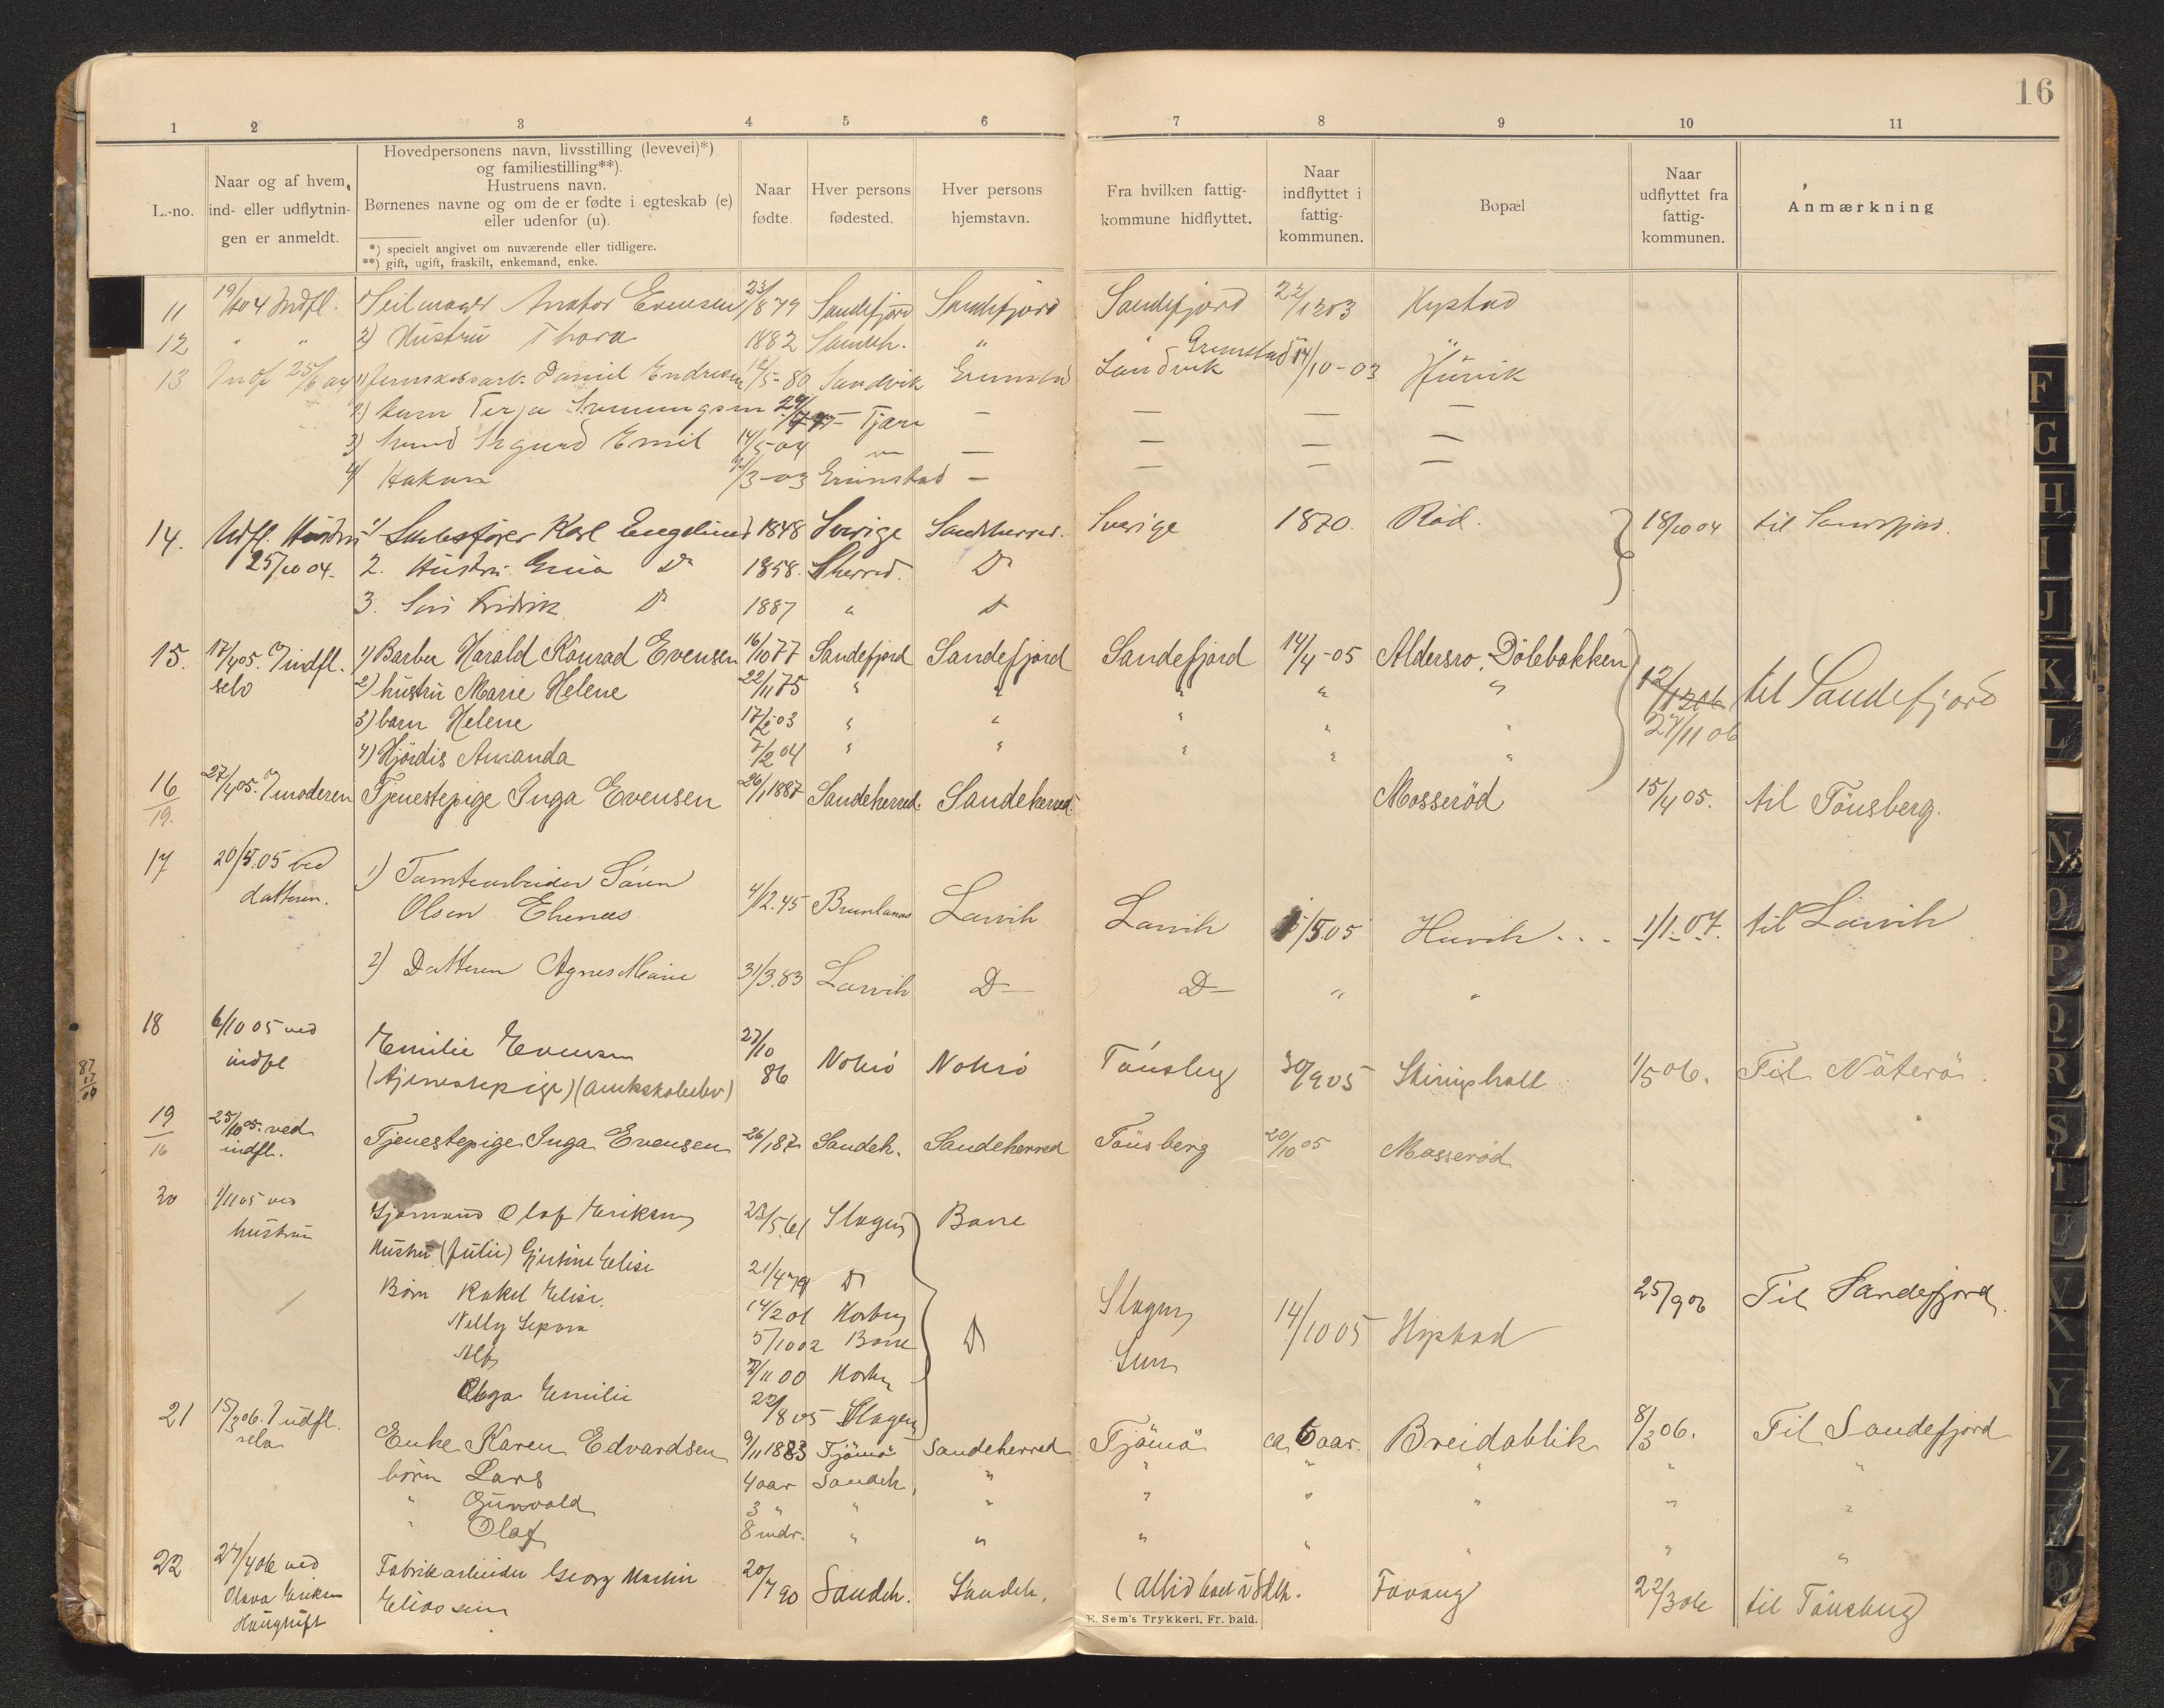 16
1 2 3 4 5 6 7 8 9 10 11
L.-no.
Naar og af hvem
ind- eller udflytnin-
gen er anmeldt.
Hovedpersonens navn, livsstilling (levevei)*)
og familiestilling**).
Hustruens navn.
Børnenes navne og om de er fødte i egteskab (e)
eller udenfor (u).
*) specielt angivet om nuværende eller tidligere.
**) gift, ugift, fraskilt, enkemand, enke.
Naar
fødte.
Hver persons
fødested.
Hver persons
hjemstavn.
Fra hvilken fattig-
kommune hidflyttet.
Naar
indflyttet i
fattig-
kommunen.
Bopæl
Naar
udflyttet fra
fattig-
kommunen.
Anmærkning
11 19/10 04 Indfl. 1) Seilmager Evensen 23/8 79 Sandefjord Sandefjord Sandefjord 22/12 03 Hystad
12 " " 2) Hustru Thora 1882 Sandeh. "
13 Indf 25/6 04 1) Daniel Endresen 12/5-80 Landvik Grimstad Landvik Grimstad 14/10-03 Huvik
2) barn Terje — — — —
3) Sigurd Emil 14/5-04 " — — — —
4) Hakon /3-03 Grimstad — — — —
14. Udfl. Hustru 1) Karl Engelund 1848 Sverige Sandeherred. Sverige 1870. Rød. 18/10 04 til Sandefjord.
25/10 04. 2. Hustru Do 1858. Sherred. Do
3. Søn Fridrik Do 1887 " Do
15. 17/4 05. Indfl. 1) Barber Harald Konrad Evensen 16/10 77 Sandefjord Sandefjord Sandefjord 14/4-05 Aldersro, Dölebakken 12/12 06 til Sandefjord
selv 2) hustru Marie Helene 22/11 75 " " " " " 27/11 06
3) barn Helene 17/2-03 " " " " "
4) Hjördis Amanda 7/2 04 " " " " "
16/19. 27/4 05. moderen Tjenestepige Inga Evensen 26/1 1887 Sandeherred. Sandeherred. Mosseröd 15/4 05. til Tönsberg.
17 20/5.05 ved 1) Tomtearbeider Sören
datteren. Olsen 4/12.45 Brunlanes Larvik Larvik 1/5.05 Huvik . . . 1/1.07. til Larvik
2) Datteren Agnes Marie 31/3.83 Larvik D— D— " "
18 6/10 05 ved Emilie Evensen 27/10 86 Nöterö Nöterö Tönsberg 30/9 05 Skiringshall 1/5 06. Til Nöterö.
indfl (tjenestepige) (amtskoleelev)
87/17/09
19/16 25/10 05. ved Tjenestepige Inga Evensen 26/1 87 Sandeh. Sandeherred Tönsberg 20/10 05 Mosseröd
indfl.
20 1/11 05 ved Sjömand Olaf Eriksen 23/5.61 Slagen Borre
hustru Hustru (Julie) Elise 21/4 79 Do
Börn Rakel Elise. 14/2 01 Horten Slagen 14/10 05 Hystad 25/9 06 Til Sandefjord.
Nelly 5/10 02 Borre Do
Alf 7/11 00 Horten Sem
Olga Emilie 22/8 05 Slagen
21 15/3 06. Indfl. Enke Karen Edvardsen 9/11 1883 Tjömö Sandeherred Tjömö ca. 6 aar. Breidablik 8/3 06. Til Sandefjord
selv börn Lars 4 aar Sandeh. " " " " " "
" Gunvald 3 " " " " " " " "
" Olaf 8 mdr. " " " " " " "
22 27/4 06 ved Fabrikarbeider Georg Martin 20/7 90 Sandeh. Sandeh. (Altid boet i Sdeh. Fevang 22/3 06 til Tönsberg
Eriksen Eliassen
E. Sem's Trykkeri, Fr. hald.
F
G
H
I
J
K
L
N
O
P
Q
R
S
T
U
V
X
Y
Z
Ø